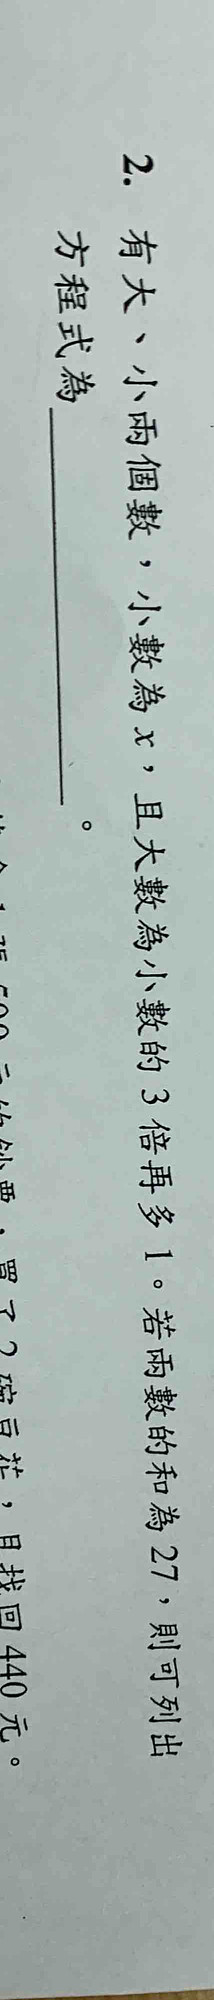 2. 有大、小兩個數，小數為 x，且大數為小數的 3 倍再多 1。若兩數的和為 27，則可列出
方程式為＿＿＿＿＿＿＿＿。
1 張 500 元的鈔票，買了 2 碗豆花，且找回 440 元。